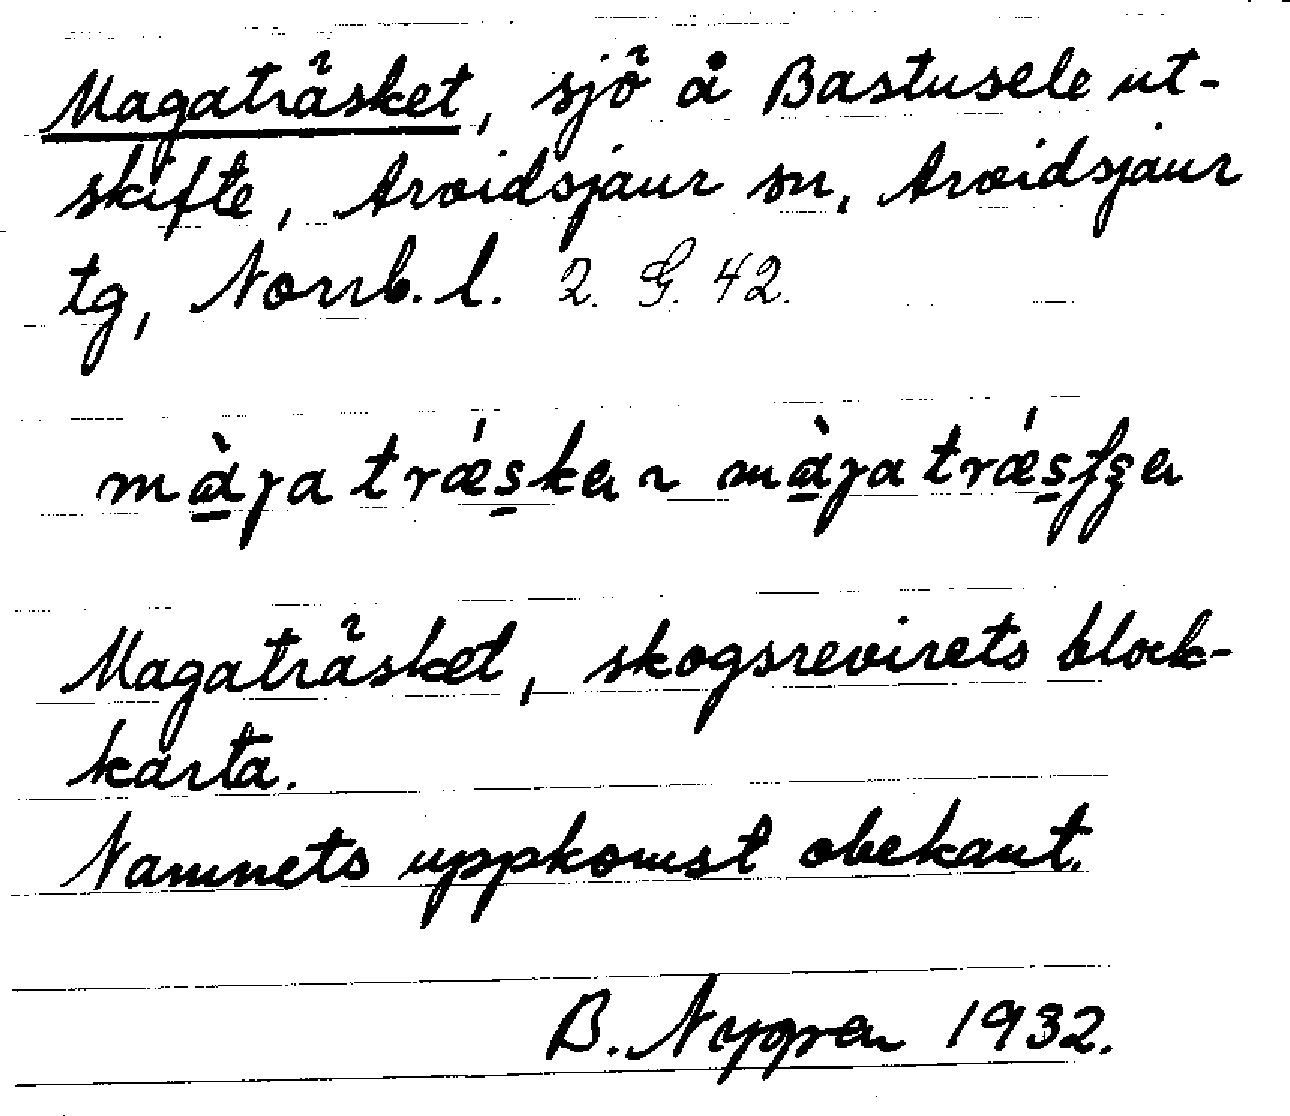 Magaträsket, sjö å Bastusele ut-
skifte, Arvidsjaur sn, Arvidsjaur
tg, Norrb. l. 2. G. 42.
màga trǽsker ~ màga trǽsʃʒer
Magaträsket, skogsrevirets block-
karta.
Namnets uppkomst obekant.
B. Nygren 1932.